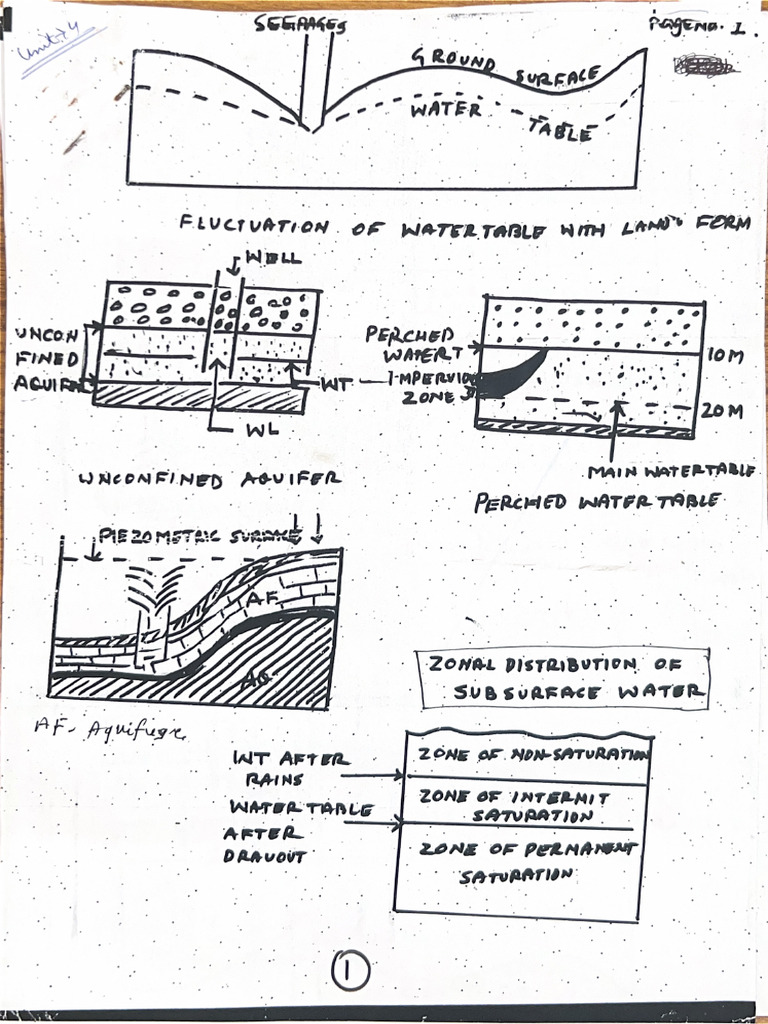 Unit 4
SEEPAGES
Pageno. 1.
GROUND SURFACE
WATER TABLE
FLUCTUATION OF WATERTABLE WITH LAND FORM
WELL
UNCON
FINED
AQUIFER
WT
WL
UNCONFINED AQUIFER
PERCHED
WATERT
IMPERVIO
ZONE
10M
20M
MAIN WATERTABLE
PERCHED WATER TABLE
PIEZOMETRIC SURFACE
AF
AQ
AF- Aquifuge
ZONAL DISTRIBUTION OF
SUBSURFACE WATER
WT AFTER
RAINS
WATER TABLE
AFTER
DRAUOUT
ZONE OF NON-SATURATION
ZONE OF INTERMIT
SATURATION
ZONE OF PERMANENT
SATURATION
1